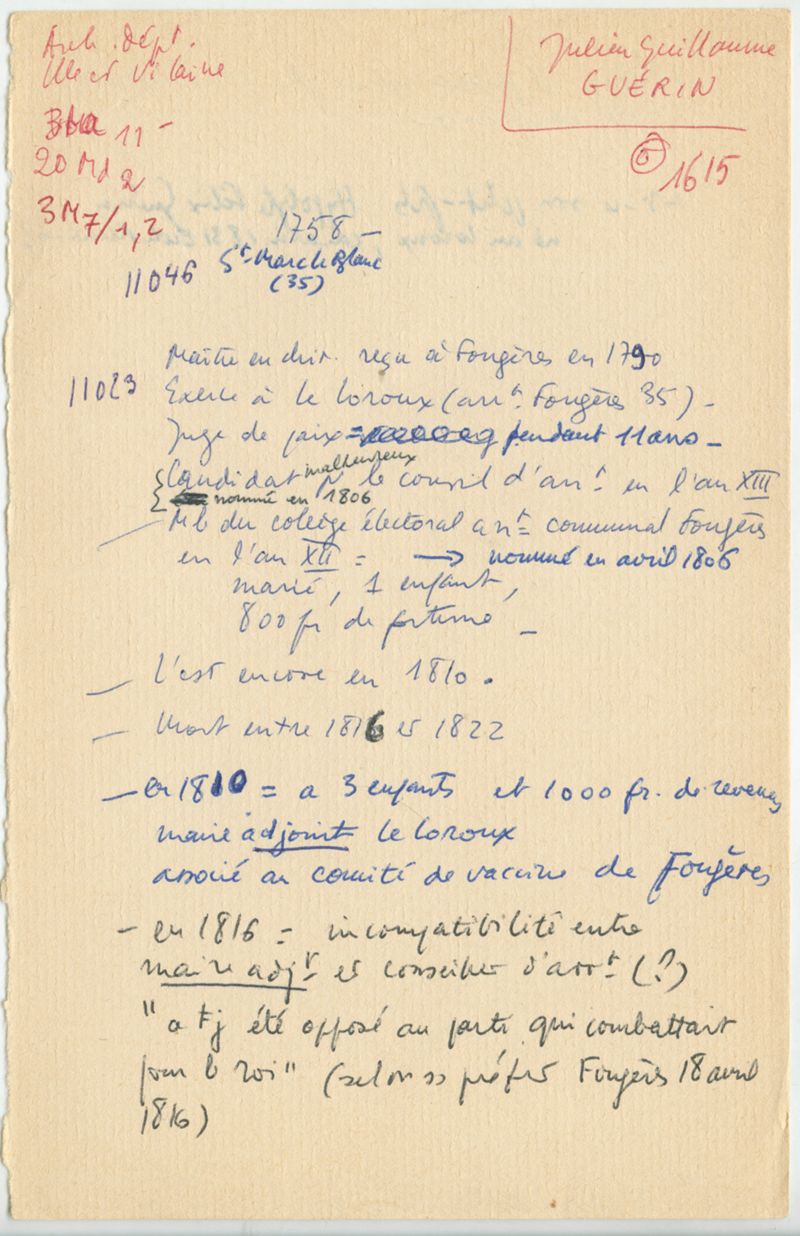 Arch. dépt.
Ille et Vilaine
11 -
20 Md 2
3M 7/1,2
Julien Guillaume
GUÉRIN
⑥ 1615
1758 -
11046 St Marc le Blanc
(35)
Maître en chir. reçu à Fougères en 1790
11023 Exerce à le loroux (arrt Fougères 35) -
Juge de paix = pendant 11 ans -
Candidat malheureux pr le conseil d'arrt en l'an XIII
nommé en 1806
Mb du collège électoral arrt = communal Fougères
en l'an XII = → nommé en avril 1806
marié, 1 enfant,
800 fr de fortune -
- l'est encore en 1810.
- Mort entre 1816 et 1822
- en 1810 = a 3 enfants et 1000 fr. de revenus
maire adjoint le loroux
associé au comité de vaccine de Fougères
- en 1816 = incompatibilité entre
maire adjt et conseiller d'arrt (?)
"a tj été opposé au parti qui combattait
pour le roi" (selon ss préfet Fougères 18 avril
1816)